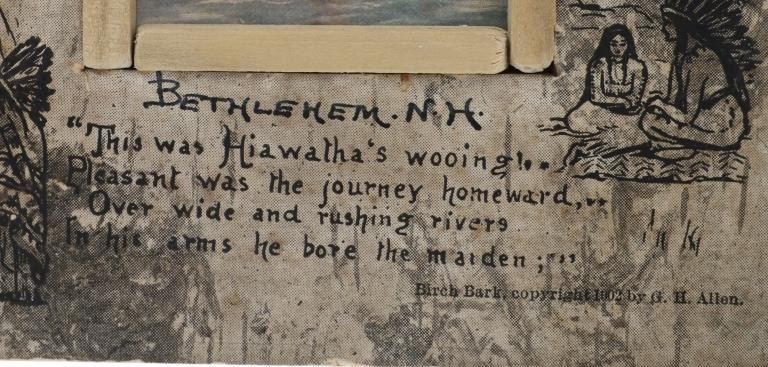 BETHLEHEM. N. H.
"This was Hiawatha's wooing!..
Pleasant was the journey homeward,..
Over wide and rushing rivers
In his arms he bore the maiden;""
Birch Bark, copyright 1902 by G. H. Allen.